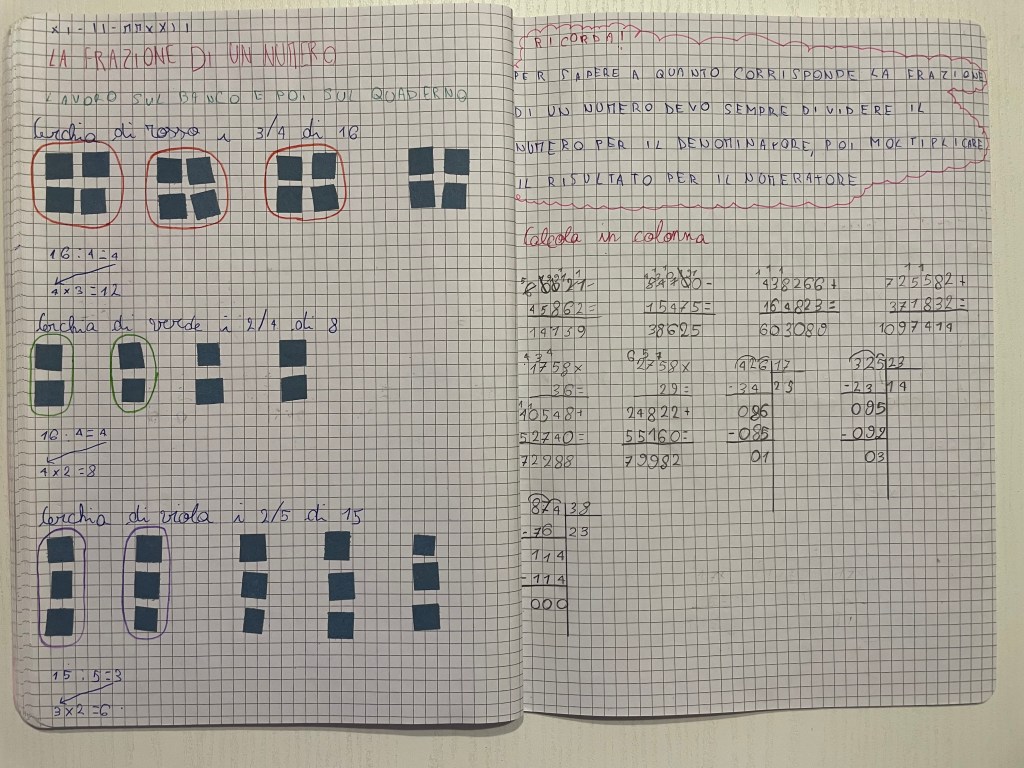 LA FRAZIONE DI UN NUMERO
LAVORO SUL BANCO E POI SUL QUADERNO
Cerchia di rosso i 3/4 di 16
16 : 4 = 4
4 x 3 = 12
Cerchia di verde i 2/4 di 8
16 : 4 = 4
4 x 2 = 8
Cerchia di viola i 2/5 di 15
15 : 5 = 3
3 x 2 = 6
RICORDA!
PER SAPERE A QUANTO CORRISPONDE LA FRAZIONE
DI UN NUMERO DEVO SEMPRE DIVIDERE IL
NUMERO PER IL DENOMINATORE, POI MOLTIPLICARE
IL RISULTATO PER IL NUMERATORE
Calcola in colonna
438266+ 725582+
45862= 15475= 164823= 371832=
14139 38625 603089 1097414
1758x 2758x 426 17 325 23
36= 29= -34 25 -23 14
10548+ 24822+ 086 095
52740= 55160= -085 -092
72288 79982 01 03
874 38
-76 23
114
-114
000